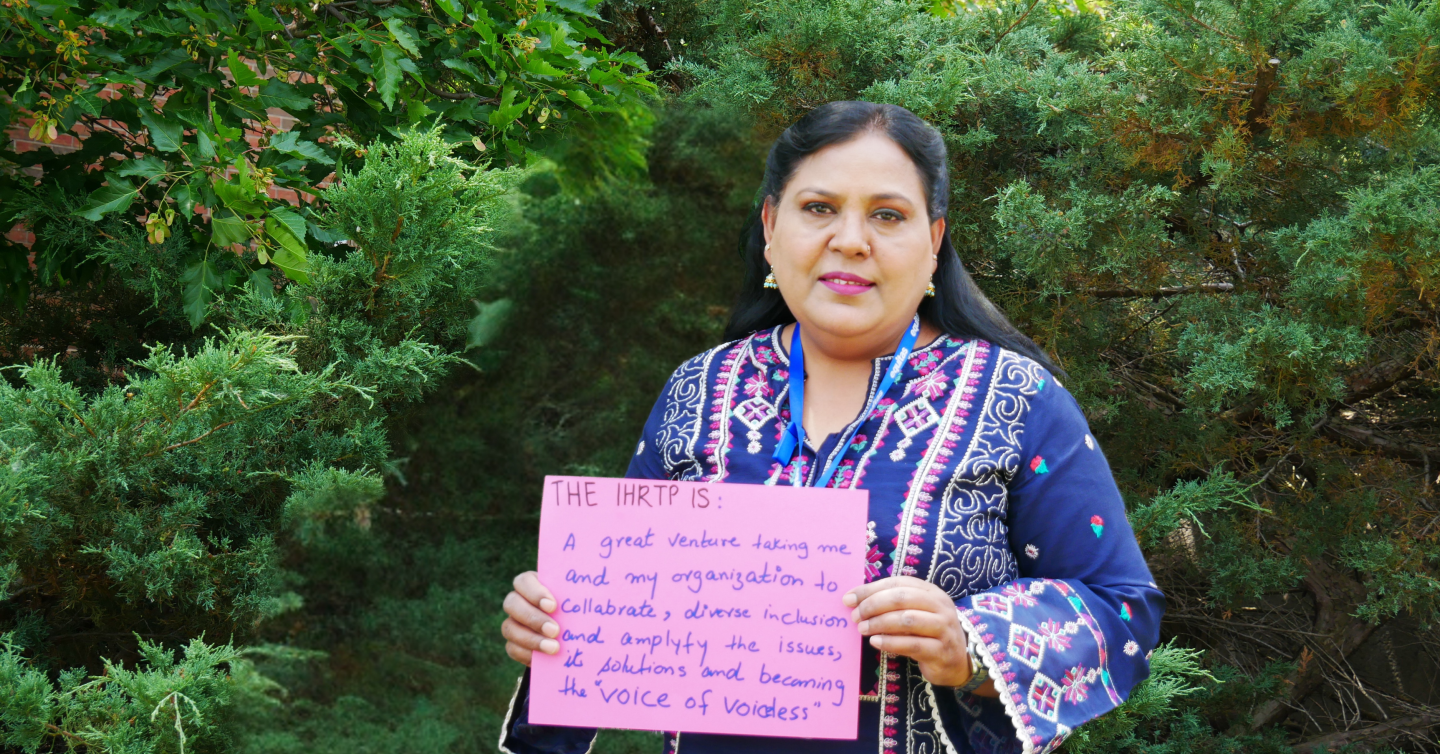 THE IHRTP IS:
A great venture taking me
and my organization to
collabrate, diverse inclusion
and amplyfy the issues,
it solutions and becoming
the "VOICE OF Voiceless"